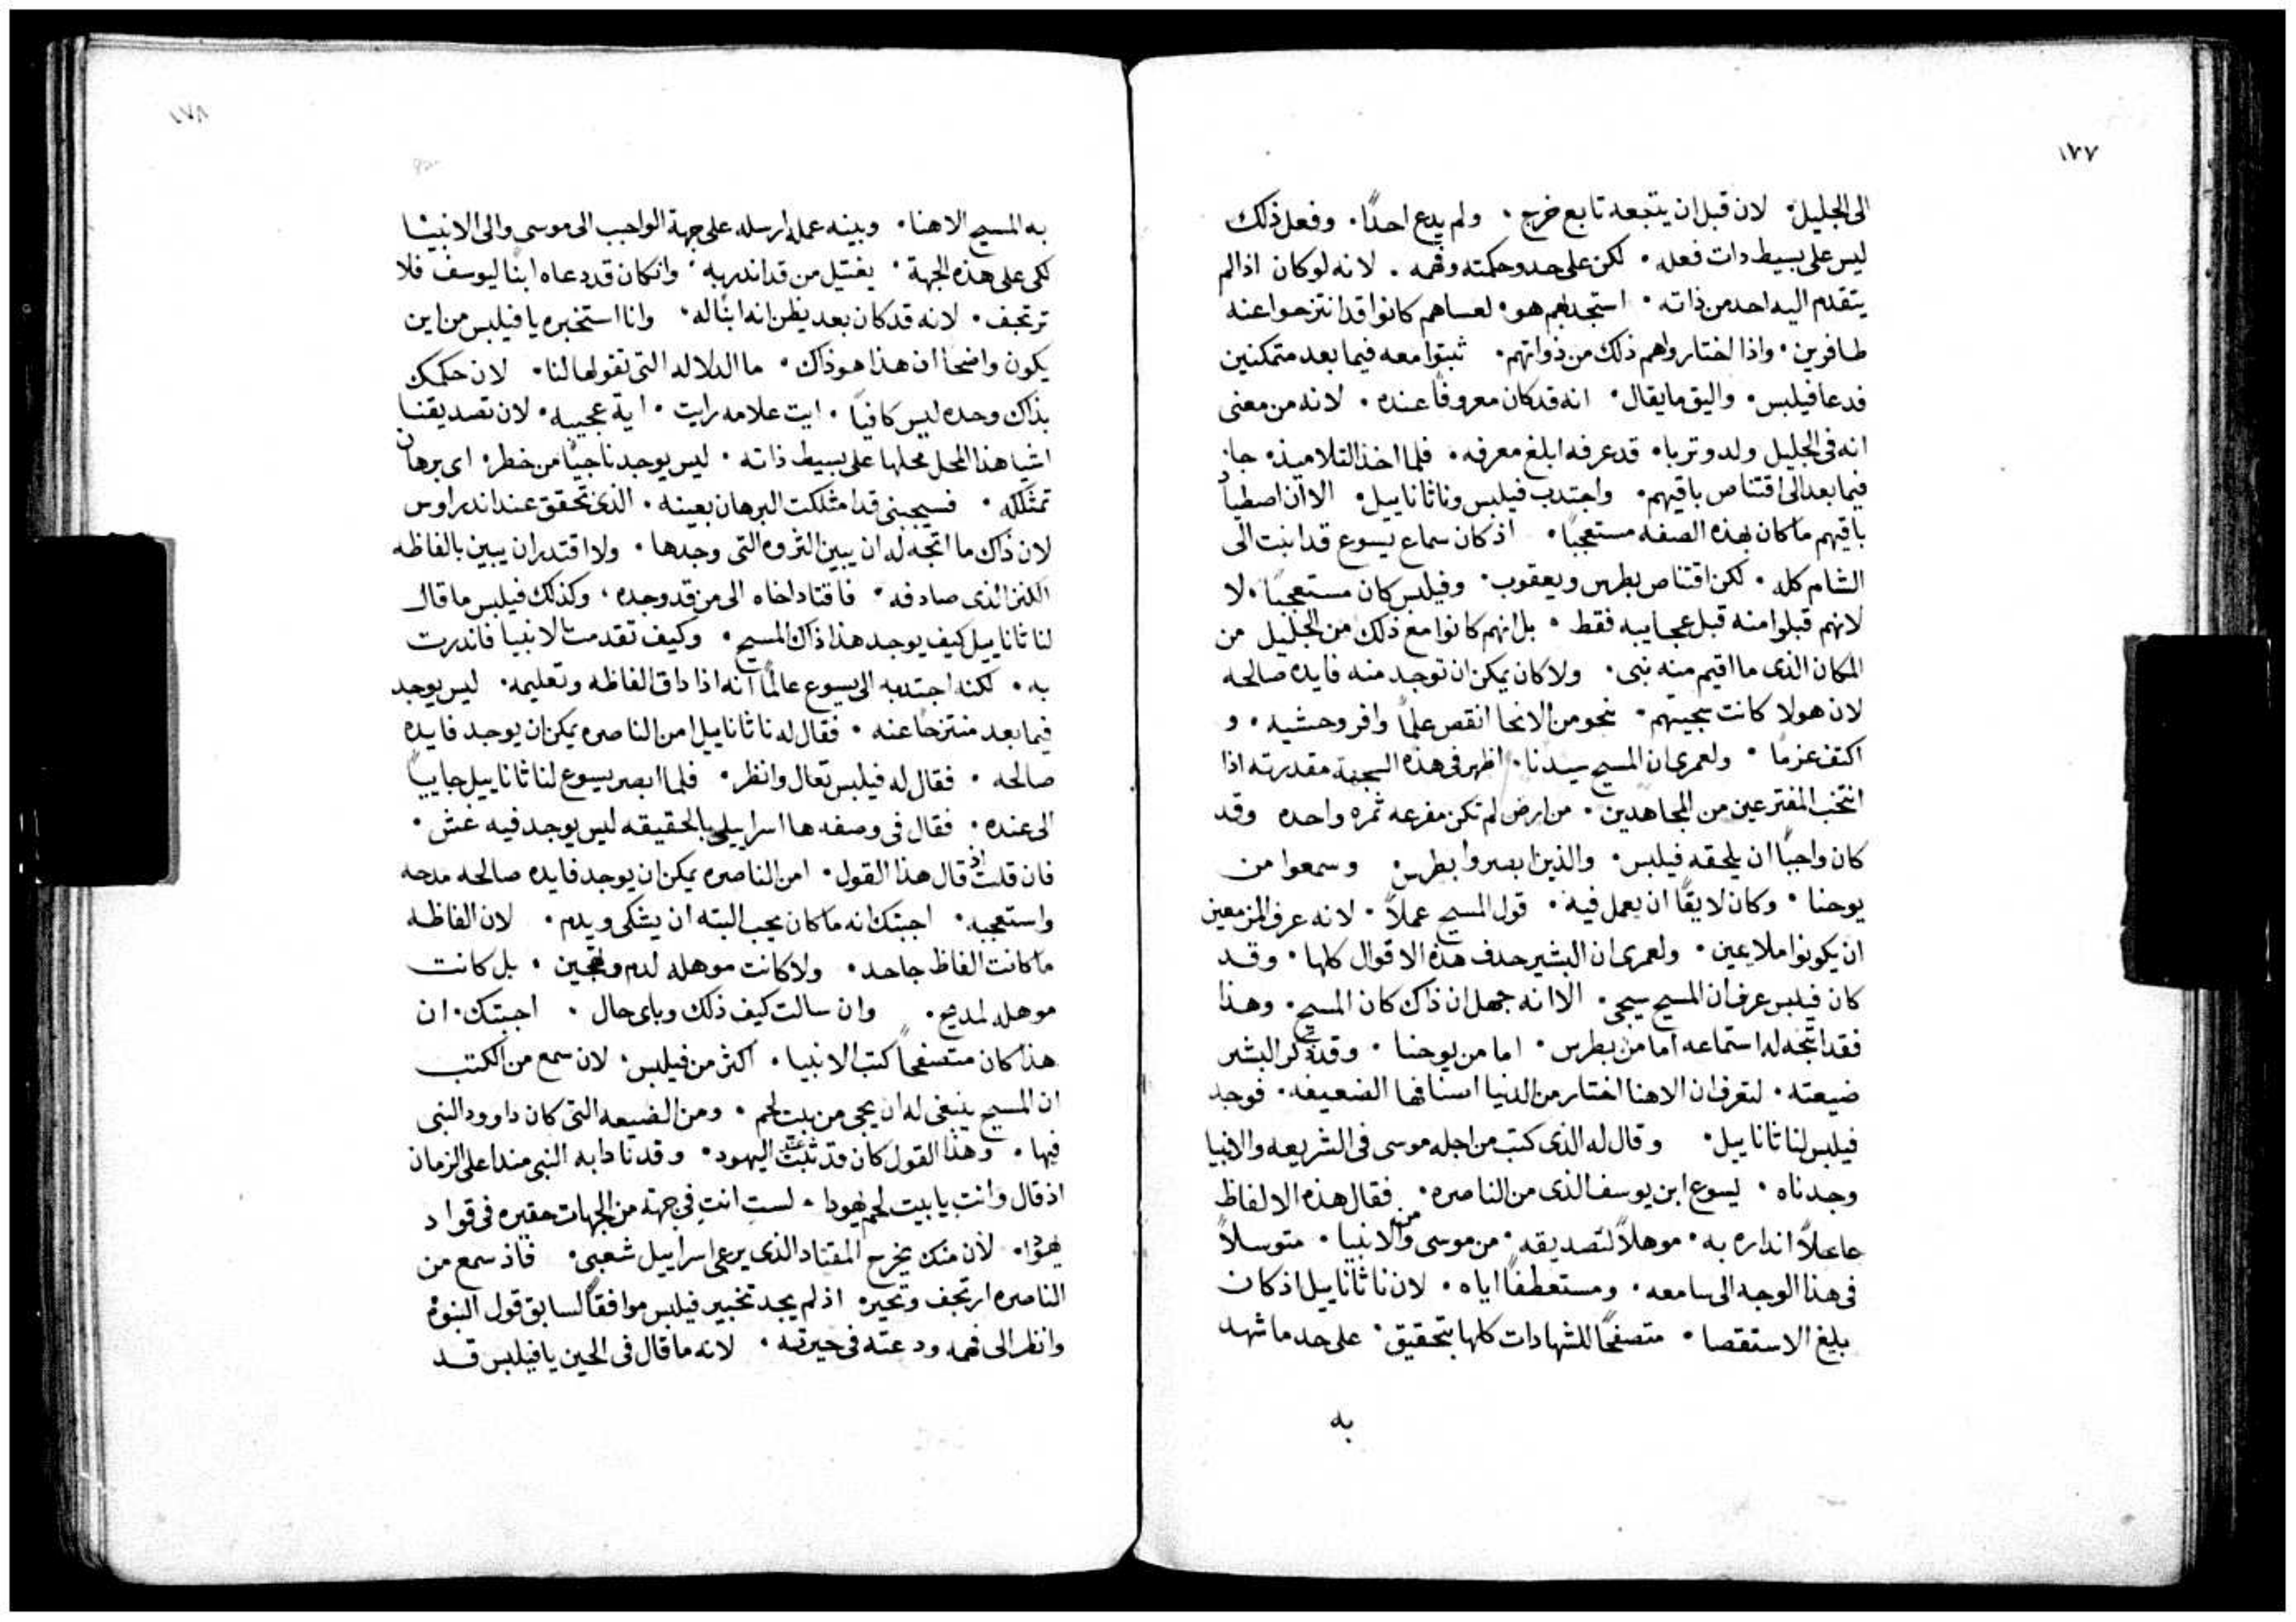 ١٧٧
الى الجليل۰ لان قبل ان يتبعه تابع خرج ۰ ولم يدع احدًا۰ وفعل ذلك
ليس على بسيط دات فعله ۰ لكن على حد وحكمته وفهمه ۰ لانه لو كان اذا لم
يتقدم اليه احد من ذاته ۰ استجدبهم هو۰ لعساهم كانوا قد انتزحوا عنه
طافرين ۰ واذا اختاروا هم ذلك من ذواتهم۰ ثبتوا معه فيما بعد متمكنين
فدعا فيلبس۰ واليق ما يقال۰ انه قد كان معروفًا عنده ۰ لانه من معنى
انه فى الجليل ولد وتربا۰ قد عرفه ابلغ معرفه ۰ فلما اخذ التلاميذ۰ جا۰
فيما بعد الى اقتناص باقيهم۰ واجتدب فيلبس وناثاناييل۰ الا ان اصطياد
باقيهم ما كان بهذه الصفه مستعجبًا۰ اذ كان سماع يسوع قد انبت الى
الشام كله ۰ لكن اقتناص بطرس ويعقوب۰ وفيلبس كان مستعجبًا۰ لا
لانهم قبلوا منه قبل عجايبه فقط ۰ بل انهم كانوا مع ذلك من الجليل من
المكان الذى ما اقيم منه نبى۰ ولا كان يمكن ان توجد منه فايده صالحه
لان هولا كانت سجيتهم۰ نحو من الانحا انقص علمًا وافر وحشيه ۰ و
اكتف عزمًا ۰ ولعمرى ان المسيح سيدنا۰ اظهر فى هذه السجية مقدرته اذا
انتخب المفترعين من المجاهدين۰ من ارض لم تكن مفرعه ثمره واحده وقد
كان واجبًا ان يلحقه فيلبس۰ والذين ابصروا بطرس وسمعوا من
يوحنا ۰ وكان لايقًا ان يعمل فيه۰ قول المسيح عملاً ۰ لانه عرف المزمعين
ان يكونوا ملايمين ۰ ولعمرى ان البشير حدف هذه الاقوال كلها ۰ وقد
كان فيلبس عرف ان المسيح سيجى۰ الا انه جهل ان ذاك كان المسيح۰ وهذا
فقد اتجه له استماعه اما من بطرس۰ اما من يوحنا ۰ وقد ذكر البشير
ضيعته۰ لتعرف ان الاهنا اختار من الدنيا اصنافها الضعيفه۰ فوجد
فيلبس لناثاناييل۰ وقال له الذى كتب من اجله موسى فى الشريعه والانبيا
وجدناه ۰ يسوع ابن يوسف الذى من الناصره۰ فقال هذه الالفاظ
جاعلاً انداره به۰ موهلاً لتصديقه۰ من موسى ومن الانبيا ۰ متوسلاً
فى هذا الوجه الى سامعه۰ ومستعطفًا اياه ۰ لان ناثاناييل اذ كان
بليغ الاستقصا ۰ متصفحًا للشهادات كلها بتحقيق۰ على حد ما شهد
به
١٧٨
به المسيح الاهنا۰ وبينه عمله ارسله على جهة الواجب الى موسى والى الانبيا
لكى على هذه الجهة ۰ يقتبل من قد اندر به۰ وان كان قد دعاه ابنًا ليوسف فلا
ترتجف۰ لانه قد كان بعد يظن انه ابنًا له۰ وانا استخبره يا فيلبس من اين
يكون واضحًا ان هذا هو ذاك ۰ ما الدلاله التى تقولها لنا۰ لان حكمك
بذاك وحده ليس كافيًا ۰ ايت علامه رايت ۰ اية عجيبه۰ لان تصديقنا
اشيا هذا المحل محلها على بسيط ذاته ۰ ليس يوجد ناجيًا من خطر۰ اى برهان
تمتلكه ۰ فسيجيبنى قد امتلكت البرهان بعينه۰ الذى تحقق عند اندراوس
لان ذاك ما اتجه له ان يبين الثروه التى وجدها ۰ ولا اقتدر ان يبين بالفاظه
الكنز الذى صادفه۰ فاقتاد اخاه الى من قد وجده ۰ وكذلك فيلبس ما قال
لناثاناييل كيف يوجد هذا ذاك المسيح۰ وكيف تقدمت الانبيا فاندرت
به۰ لكنه اجتدبه الى يسوع عالمًا انه اذا داق الفاظه وتعليمه۰ ليس يوجد
فيما بعد منتزحًا عنه ۰ فقال له ناثاناييل امن الناصره يمكن ان يوجد فايده
صالحه ۰ فقال له فيلبس تعال وانظر۰ فلما ابصر يسوع لناثاناييل جاييًا
الى عنده۰ فقال فى وصفه ها اسراييلى بالحقيقه ليس يوجد فيه غش ۰
فان قلت اذ قال هذا القول۰ امن الناصره يمكن ان يوجد فايده صالحه مدحه
واستعجبه۰ اجبتك انه ما كان يجب البته ان يشكى ويدم۰ لان الفاظه
ما كانت الفاظ جاحد۰ ولا كانت موهله لدم وتهجين ۰ بل كانت
موهله لمديح۰ وان سالت كيف ذلك وباى حال ۰ اجبتك۰ ان
هذا كان متصفحًا كتب الانبيا ۰ اكثر من فيلبس۰ لان سمع من الكتب
ان المسيح ينبغى له ان يجى من بيت لحم ۰ ومن الضيعه التى كان داوود النبى
فيها ۰ وهذا القول كان قد ثبت عند اليهود۰ وقد نادا به النبى مند اعلى الزمان
اذ قال وانتِ يا بيت لحم يهودا ۰ لستِ انتِ فى جهة من الجهات حقيره فى قواد
يهودا۰ لان منك يخرج المقتاد الذى يرعى اسراييل شعبى۰ فاذ سمع من
الناصره ارتجف وتحير۰ اذ لم يجد تخبير فيلبس موافقًا لسابق قول النبوة
وانظر الى فهمه ودعته فى حيرته ۰ لانه ما قال فى الحين يا فيلبس قد